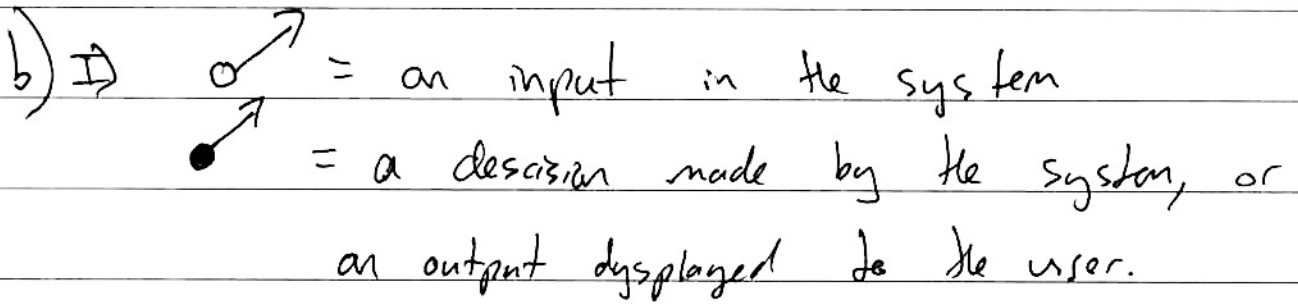 b) I) = an input in the system
= a descision made by the system, or
an output dysplayed to the user.